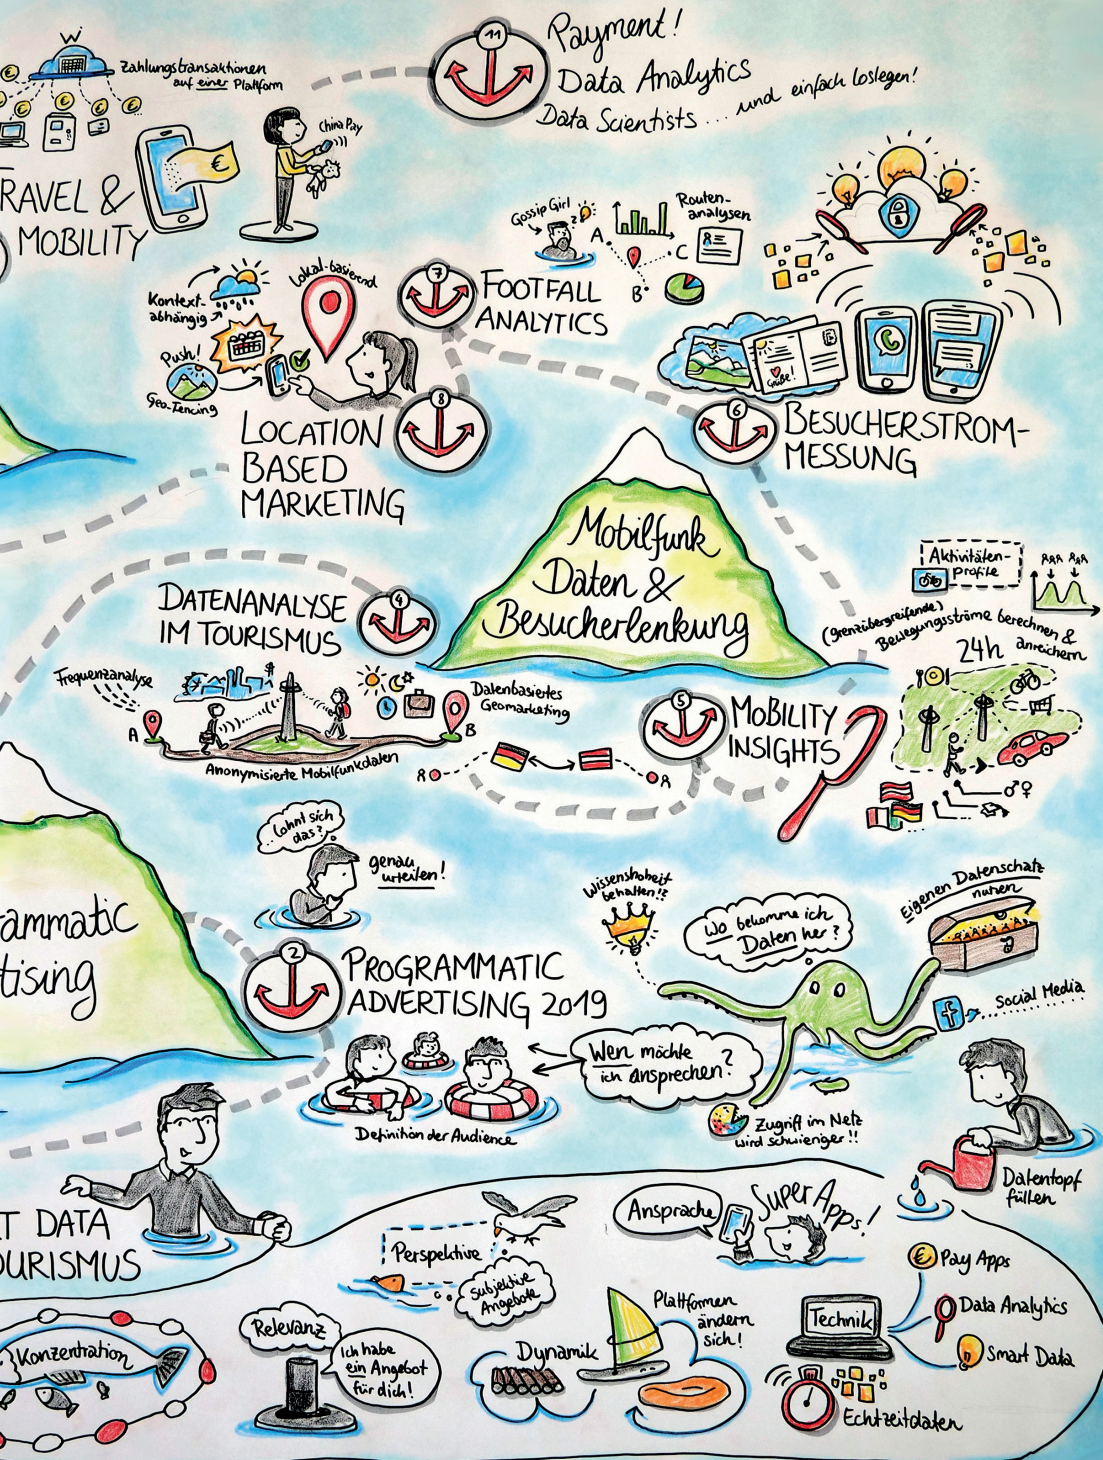 W
Zahlungstransaktionen
auf einer Plattform
€
China Pay
11
Payment!
Data Analytics
Data Scientists ... und einfach loslegen!
RAVEL &
MOBILITY
Gossip Girl
Routen-
analysen
A
B
C
Kontext-
abhängig
Lokal-basierend
Push!
Geo-Fencing
7
FOOTFALL
ANALYTICS
8
LOCATION
BASED
MARKETING
Grüße!
6
BESUCHERSTROM-
MESSUNG
Mobilfunk
Daten &
Besucherlenkung
Aktivitäten-
profile
(grenzübergreifende)
Bewegungsströme berechnen &
anreichern
24h
DATENANALYSE
IM TOURISMUS
4
Frequenzanalyse
A
B
Datenbasiertes
Geomarketing
Anonymisierte Mobilfunkdaten
5
MOBILITY
INSIGHTS
Lohnt sich
das?
genau
urteilen!
rammatic
tising
2
PROGRAMMATIC
ADVERTISING 2019
Wissenshoheit
behalten!?
Wo bekomme ich
Daten her?
Eigenen Datenschatz
nutzen
f
Social Media
Wen möchte
ich ansprechen?
Definition der Audience
Zugriff im Netz
wird schwieriger!!
Datentopf
füllen
T DATA
OURISMUS
Perspektive
Subjektive
Angebote
Ansprache
Super Apps!
Konzentration
Relevanz
Ich habe
ein Angebot
für dich!
Dynamik
Plattformen
ändern
sich!
Technik
€ Pay Apps
Data Analytics
Smart Data
Echtzeitdaten